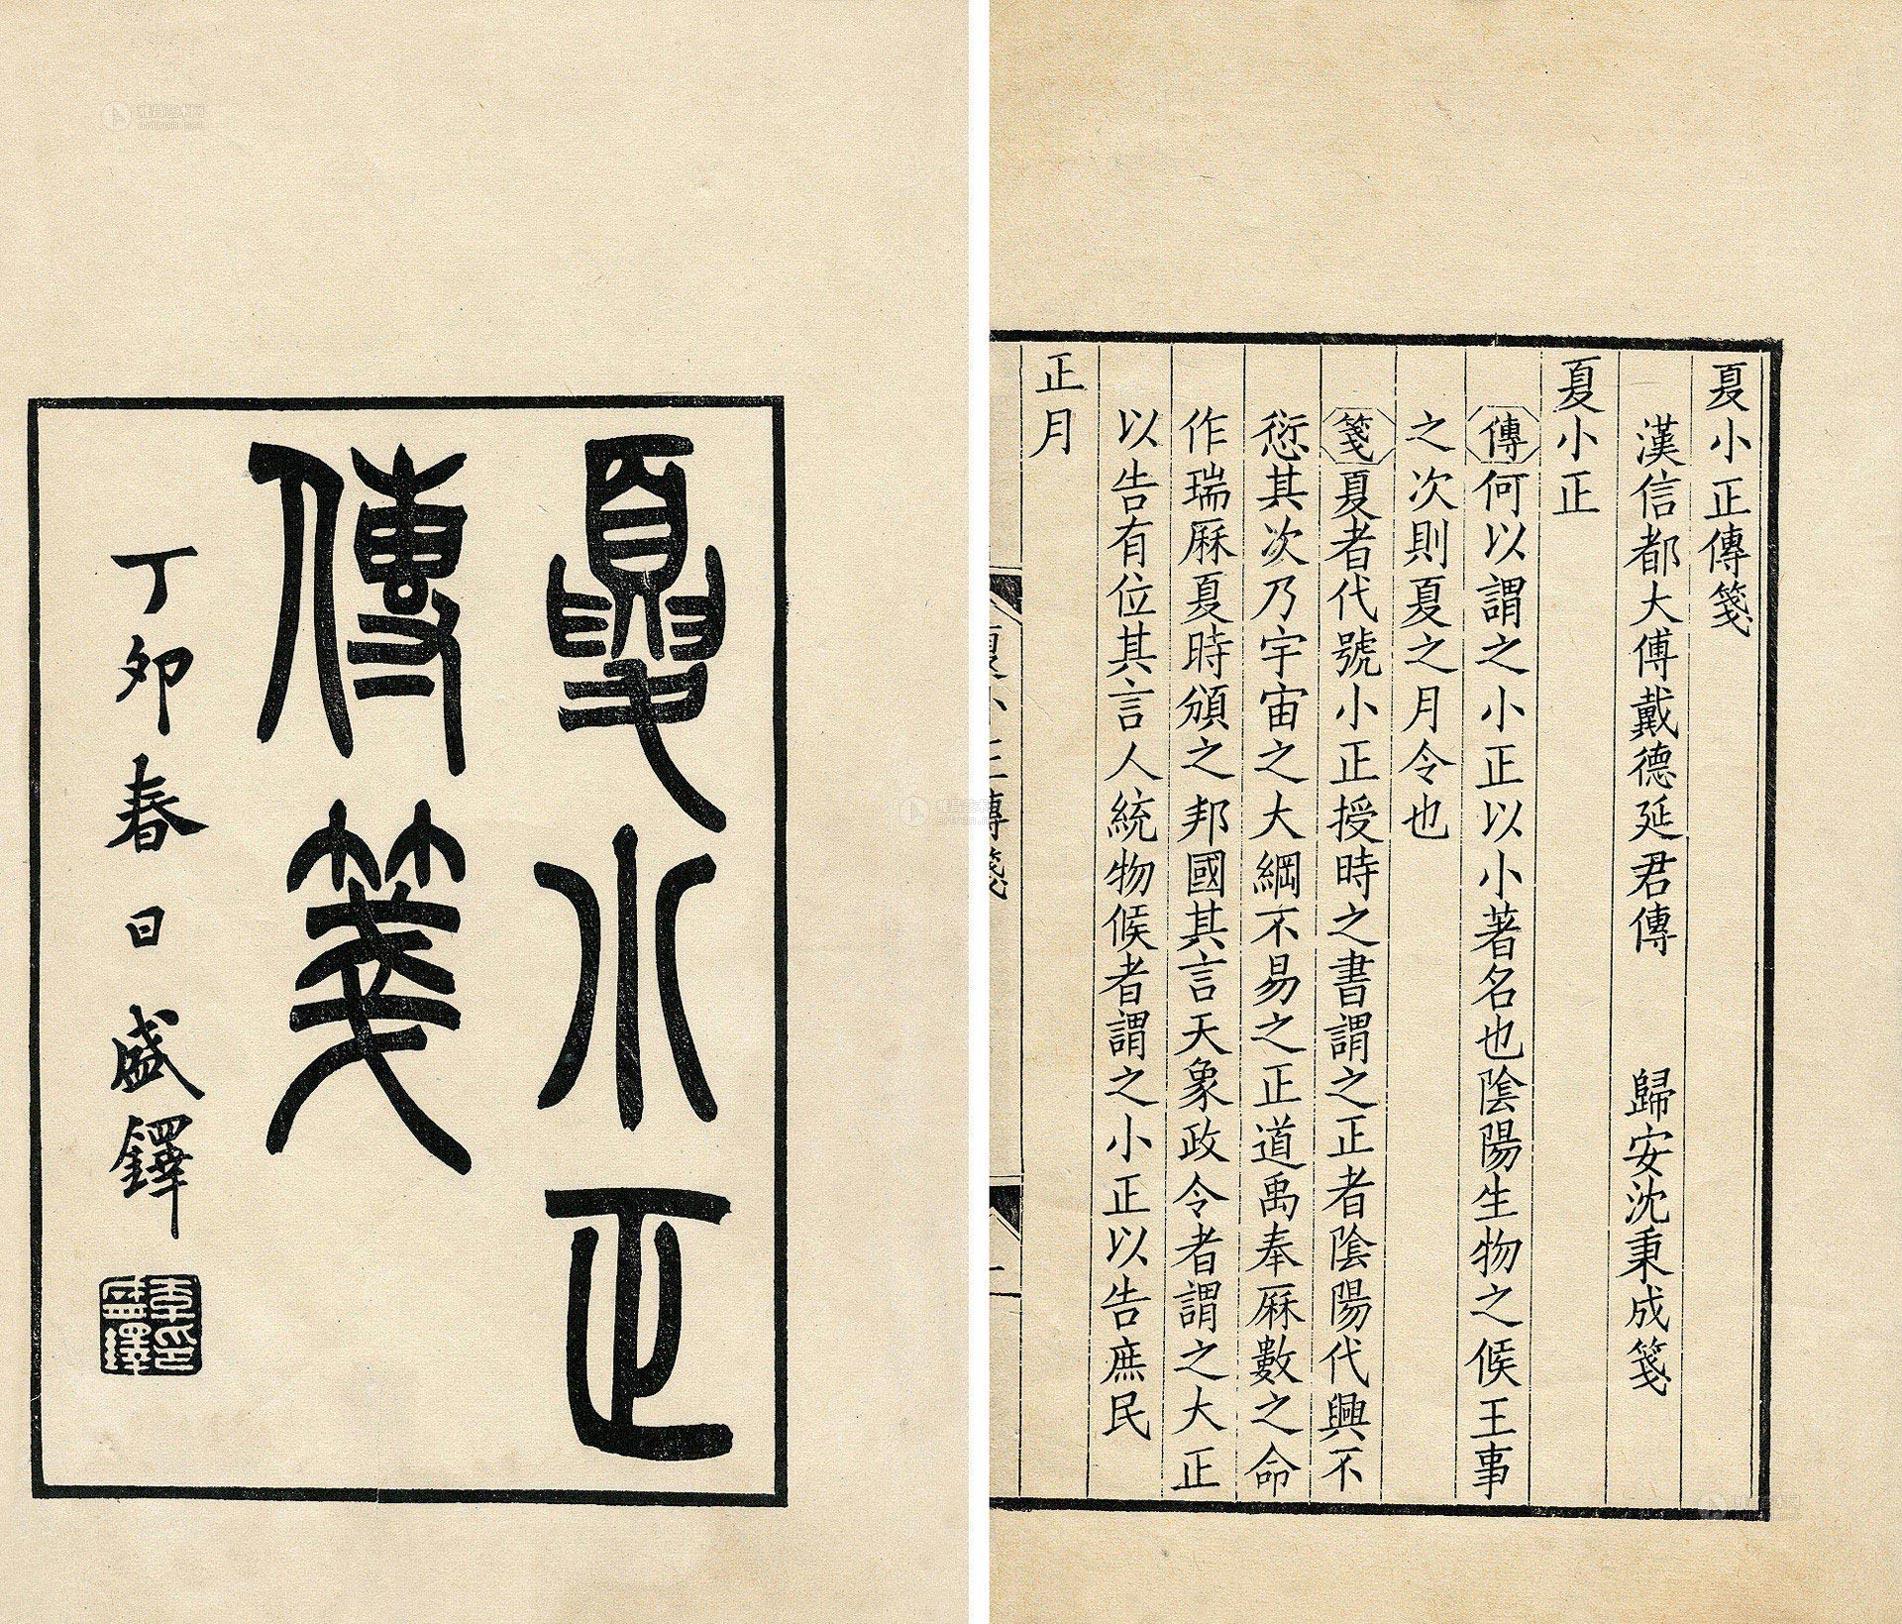 夏小正
傳箋
丁卯春日盛鐸
夏小正傳箋
漢信都大傅戴德延君傳　歸安沈秉成箋
夏小正
傳何以謂之小正以小著名也陰陽生物之候王事
之次則夏之月令也
箋夏者代號小正授時之書謂之正者陰陽代興不
愆其次乃宇宙之大綱不易之正道禹奉厤數之命
作瑞厤夏時頒之邦國其言天象政令者謂之大正
以告有位其言人統物候者謂之小正以告庶民
正月
夏小正傳箋